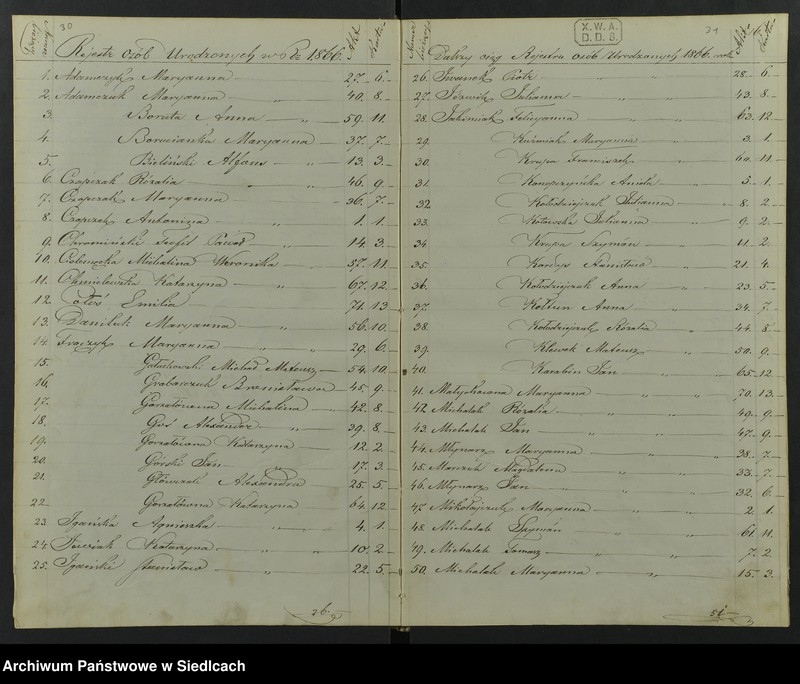 30
Rejestr Osób Urodzonych w 1866
1. Adamczyk Maryanna 27. 6.
2. Adamczuk Maryanna 40. 8.
3. Boruta Anna 59. 11.
4. Borucianka Maryanna 37. 7.
5. Bieliński 13. 3.
6. Czapczak Rozalia 46. 9.
7. Czapczak Maryanna 36. 7.
8. Antonina 1. 1.
9. Chromiński Teofil 14. 3.
10. Michalina Weronika 57. 11.
11. Chmielewska Katarzyna 67. 12
12. Emilia 71. 13
13. Daniluk Maryanna 56. 10.
14. Maryanna 29. 6.
15. Michał Mateusz 54. 10.
16. Grabarczuk Bronisława 45. 9.
17. Michalina 42. 8.
18. Alexander 39. 8.
19. Gorzałówna Katarzyna 12. 2.
20. Górski Jan 17. 3.
21. Główczak Alexandra 25. 5.
22. Gorzałówna Katarzyna 64. 12
23. Igańska Agnieszka 4. 1.
24. Katarzyna 10. 2.
25. Igański Stanisław 22. 5.
26.
X.W.A.
D.D.S.
31
Dalszy ciąg Rejestru osób Urodzonych 1866 roku
26. Iwanek Piotr 28. 6.
27. Jóźwik Julianna 43. 8.
28. Jakimiak Felicyanna 63. 12
29. Kuźmiak Maryanna 3. 1.
30. Krupa Franciszek 60. 11
31. Konopczyńska Aniela 5. 1.
32. Kołodziejczak Julianna 8. 2
33. Julianna 9. 2.
34. Krupa Szymon 11. 2
35. Stanisław 21. 4.
36. Kołodziejczak Anna 23. 5.
37. Kołtun Anna 34. 7.
38. Kołodziejczak Rozalia 44. 8
39. Klewek Mateusz 50. 9.
40. Karabin Jan 65. 12
41. Maryanna 70. 13.
42. Michalak Rozalia 49. 9.
43. Michalak Jan 47. 9.
44. Młynarz Maryanna 38. 7.
45. Marczuk Magdalena 33. 7.
46. Młynarz Jan 32. 6.
47. Mikołajczuk Maryanna 2. 1.
48. Michalak Szymon 61. 11.
49. Michalak Tomasz 7. 2
50. Michalak Maryanna 15. 3.
51.
Archiwum Państwowe w Siedlcach